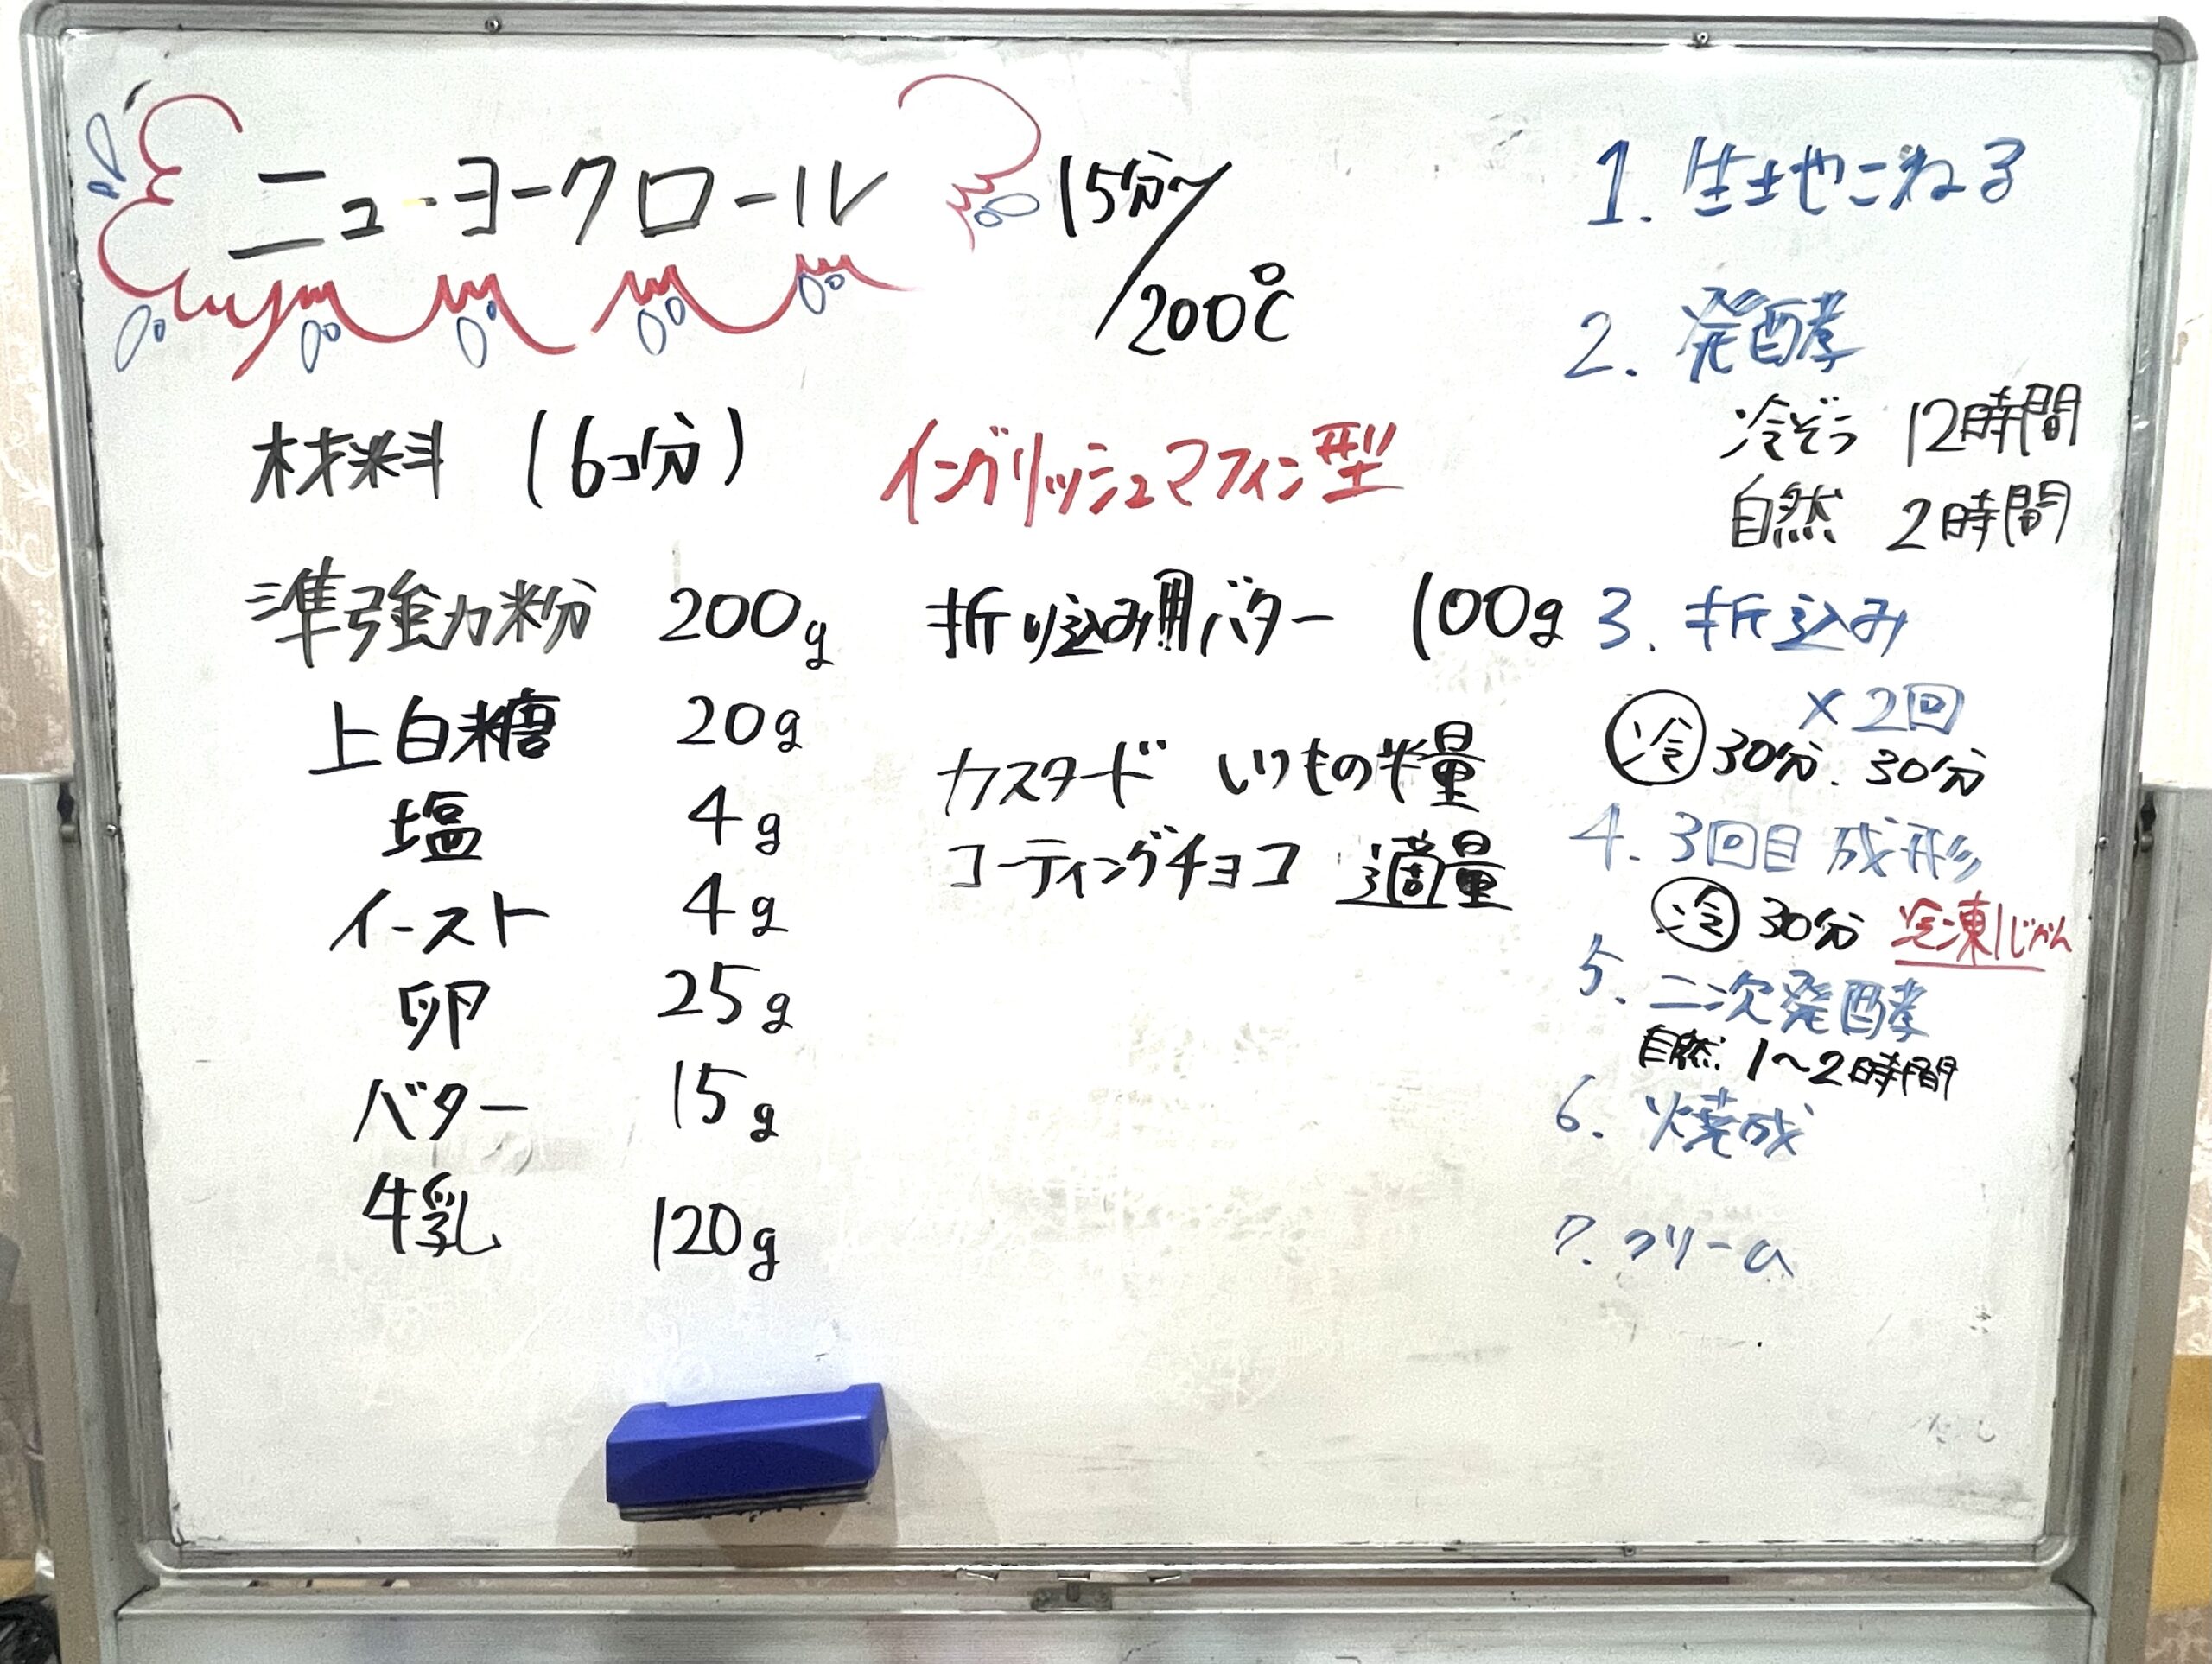 ニューヨークロール
15分〜/200℃
材料 (6コ分)
イングリッシュマフィン型
準強力粉 200g
上白糖 20g
塩 4g
イースト 4g
卵 25g
バター 15g
牛乳 120g
折り込み用バター 100g
カスタード いつもの半量
コーティングチョコ 適量
1. 生地こねる
2. 発酵
冷ぞう 12時間
自然 2時間
3. 折込み
×2回
冷 30分、30分
4. 3回目 成形
冷 30分 冷凍1じかん
5. 二次発酵
自然 1〜2時間
6. 焼成
7. クリーム